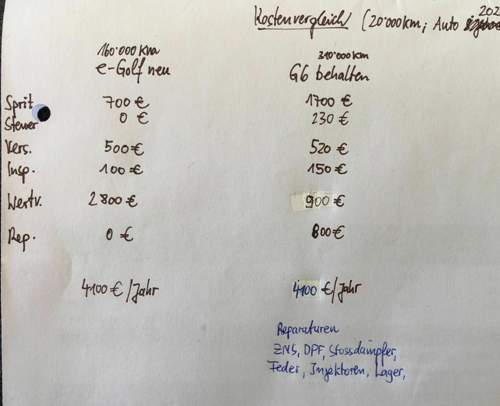 202
Kostenvergleich (20'000km; Auto
160'000 km 310'000km
e-Golf neu G6 behalten
Sprit 700 € 1700 €
Steuer 0 € 230 €
Vers. 500 € 520 €
Insp. 100 € 150 €
Wertv. 2800 € 900 €
Rep. 0 € 600 €
4100 €/Jahr 4100 €/Jahr
Reparaturen
ZMS, DPF, Stossdämpfer,
Feder, Injektoren, Lager,